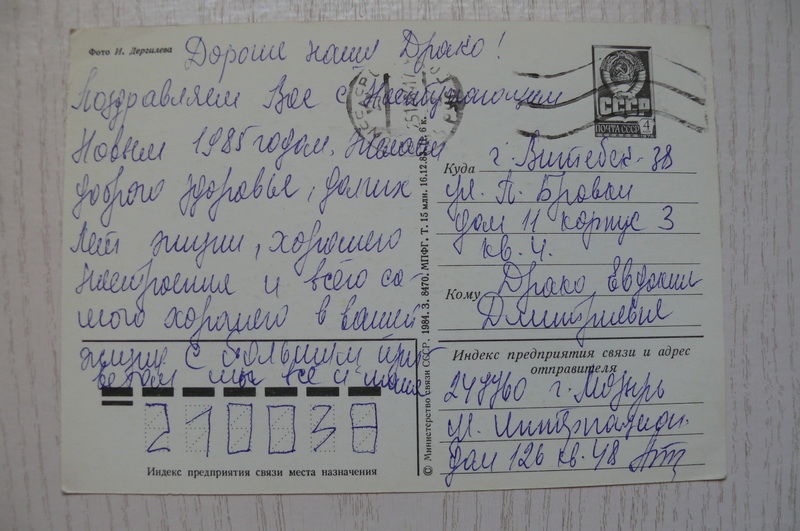 Фото И. Дергилева
Дорогие наши Драко!
Поздравляем Вас с Наступающим
Новым 1985 годом. Желаем
доброго здоровья, долгих
лет жизни, хорошего
настроения и всего са-
мого хорошего в вашей
жизни с большим при-
ветом мы все и наши
210038
Индекс предприятия связи места назначения
© Министерство связи СССР. 1984. З. 8470. МПФГ. Т. 15 млн. 16.12.83. Ц. 6 к.
СССР
ПОЧТА СССР 4
Куда г. Витебск-38
ул. П. Бровки
дом 11 корпус 3
кв. 4.
Кому Драко Евдокии
Дмитриевне
Индекс предприятия связи и адрес
отправителя
247760 г. Мозырь
ул. Интернацион.
дом 126 кв. 48